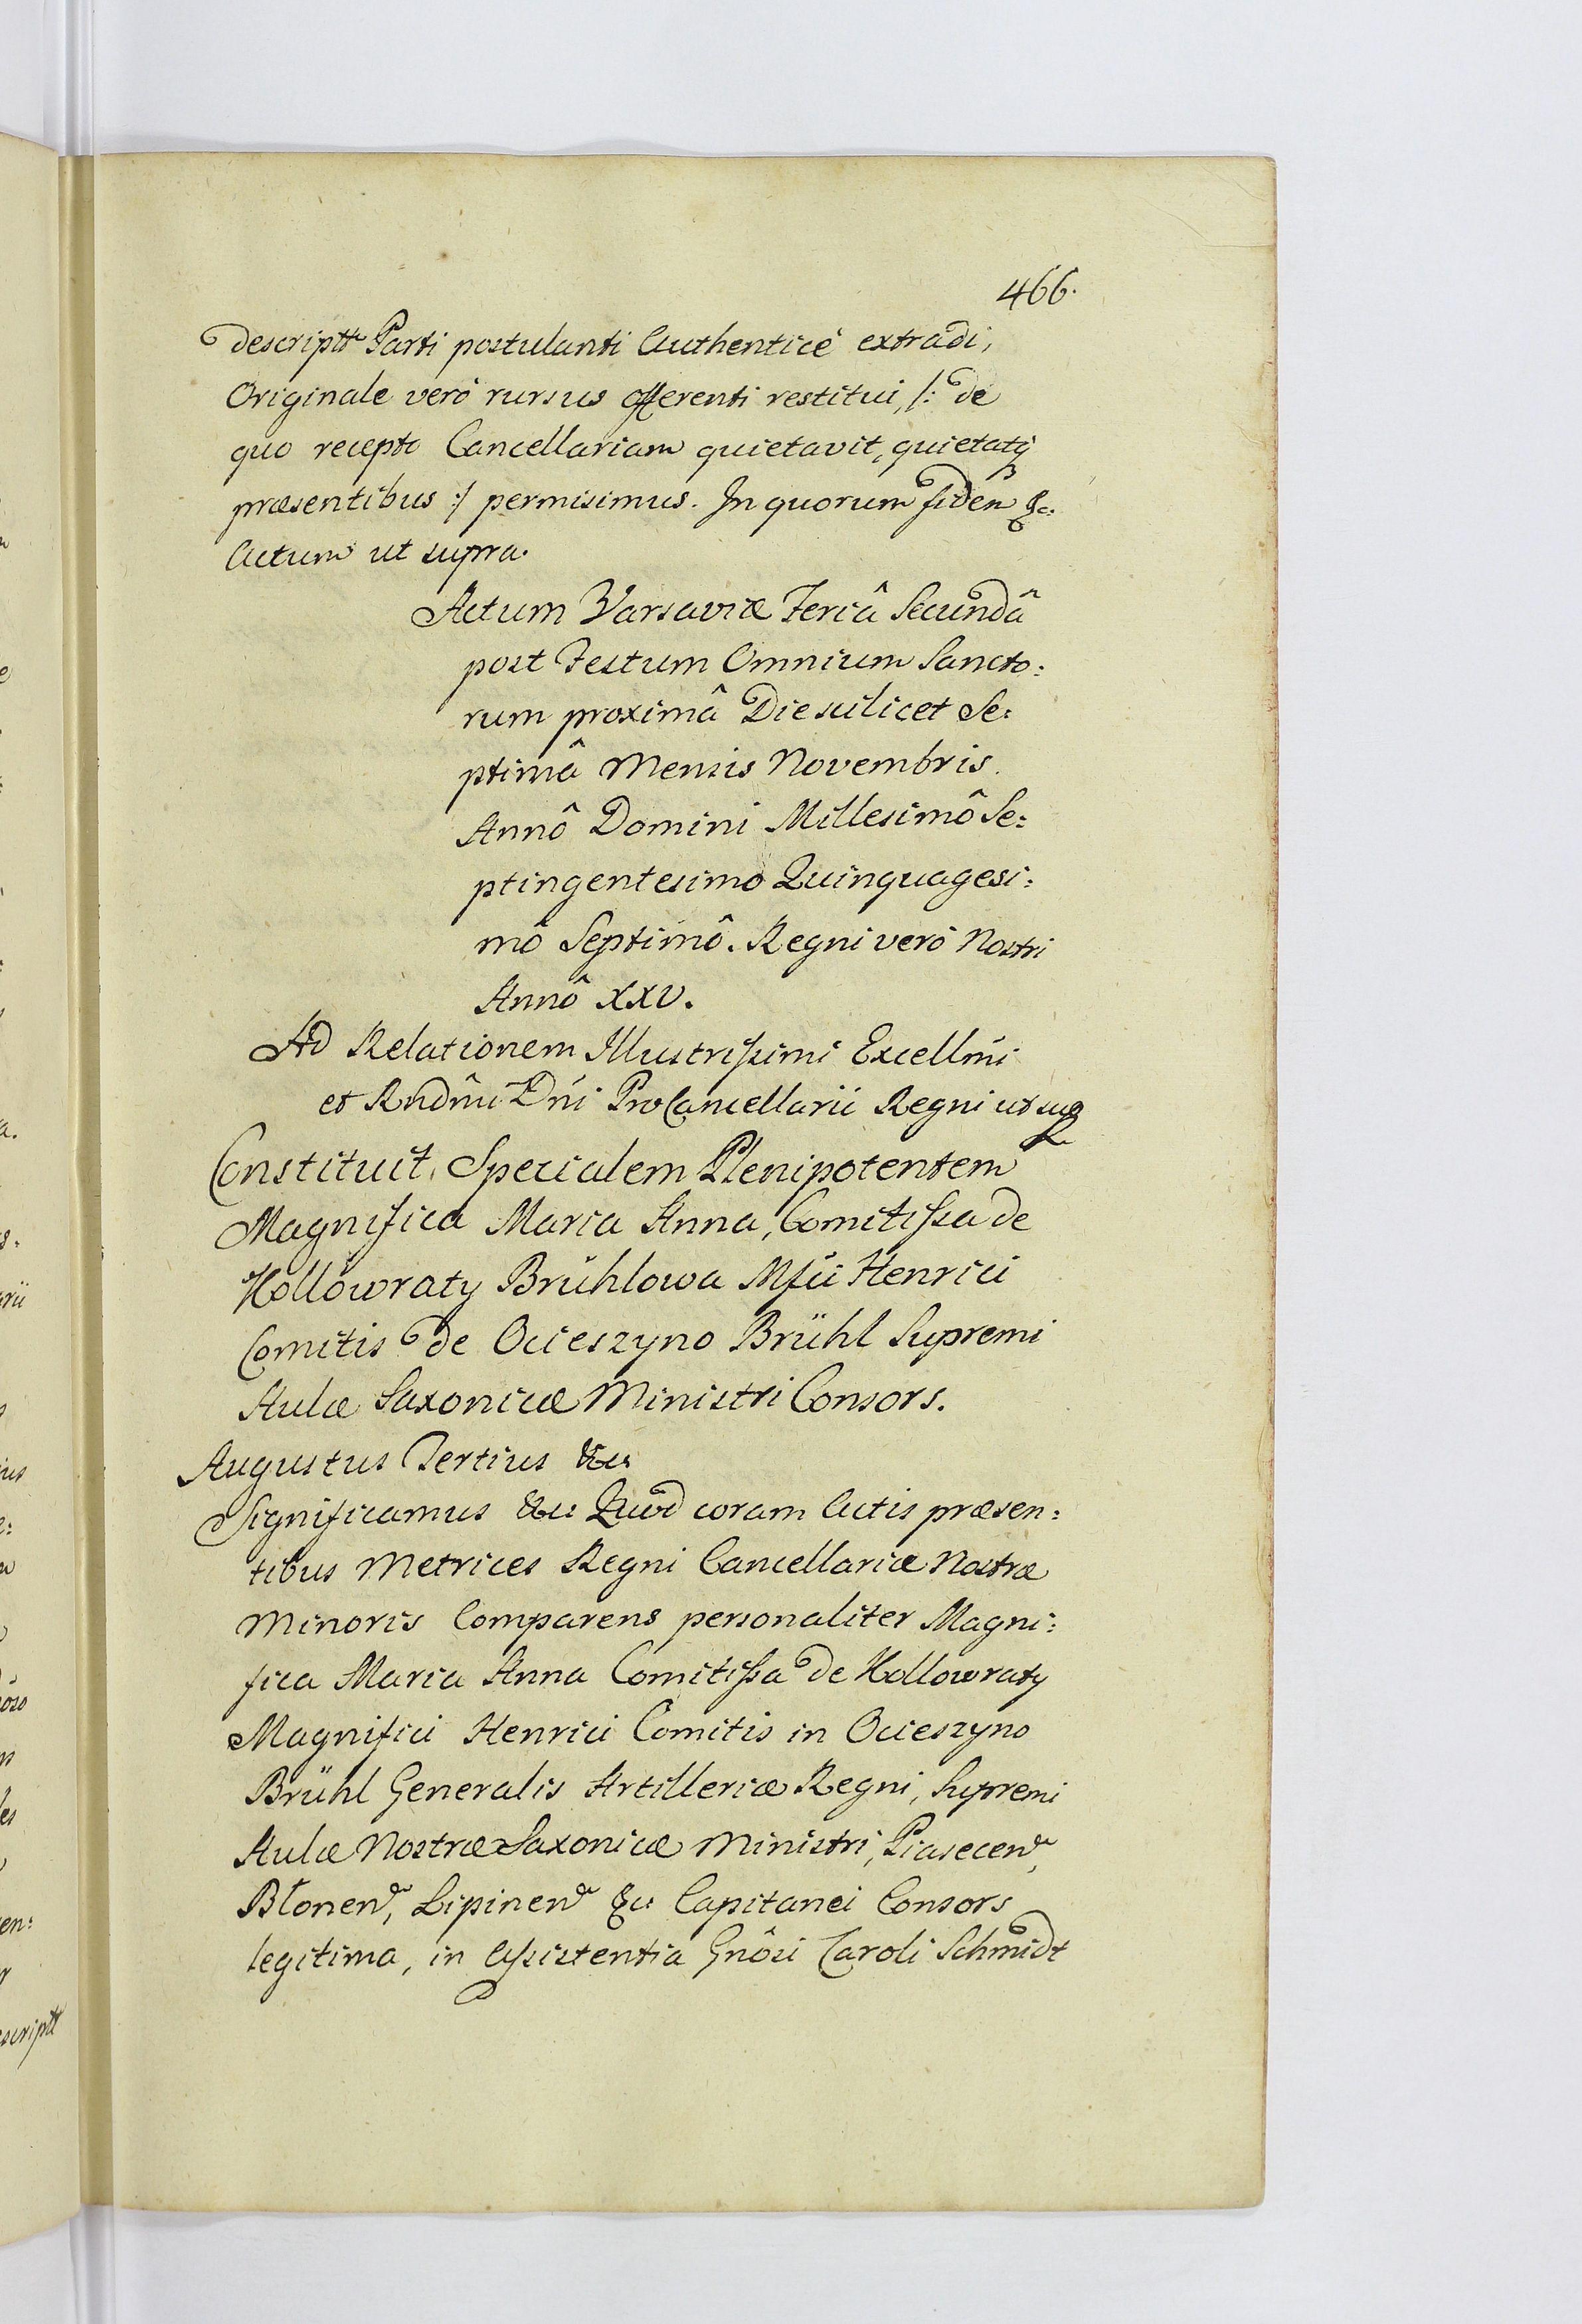 466.
descriptt Parti postulanti Authenticè extradi,
Originale verò rursus offerenti restitui, /: de
quo recepto Cancellariam quietavit, quietatq
præsentibus :/ permisimus. In quorum fidem &c:
Actum ut supra.
Actum Varsaviæ Feriâ Secundâ
post Festum Omnium Sancto:
rum proximâ Die scilicet Se:
ptimâ Mensis Novembris.
Annô Domini Millesimô Se:
ptingentesimo Quinquagesi:
mô Septimô. Regni verò Nostri
Annô XXV.
Ad Relationem Illustrissimi Excellm̃i
et Rndm̃i Dñi ProCancellarii Regni ut sup
Constituit Specialem Plenipotentem
Magnifica Maria Anna, Comitissa de
Kollowraty Brühlowa Mfci Henrici
Comitis de Ocieszyno Brühl Supremi
Aulæ Saxonicæ Ministri Consors.
Augustus Tertius &c:
Significamus &c: Quod coram Actis præsen:
tibus Metrices Regni Cancellariæ Nostræ
Minoris Comparens personaliter Magni:
fica Maria Anna Comitissa de Kollowraty
Magnifici Henrici Comitis in Ocieszyno
Brühl Generalis Artilleriæ Regni, Supremi
Aulæ Nostræ Saxonicæ Ministri, Piasecen,
Błonen, Lipinen &c: Capitanei Consors
legitima, in Assistentia Gnôsi Caroli Schmidt